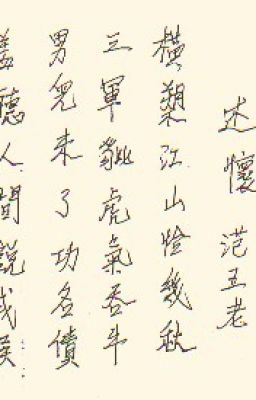 述懷 范五老
橫槊江山恰幾秋
三軍貔虎氣吞牛
男兒未了功名債
羞聽人間說武侯